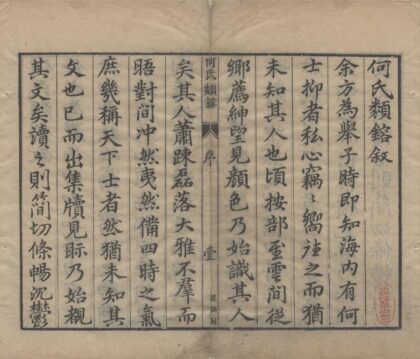 何氏類鎔叙
余方為舉子時即知海內有何
士抑者私心竊〻嚮往之而猶
未知其人也頃按部至雲間從
鄉薦紳望見顏色乃始識其人
何氏類鎔
序
壹
矣其人蕭踈磊落大雅不羣而
晤對間冲然夷然備四時之氣
庶幾稱天下士者然猶未知其
文也已而出集牘見眎乃始覩
其文矣讀之則簡切條暢沉鬱